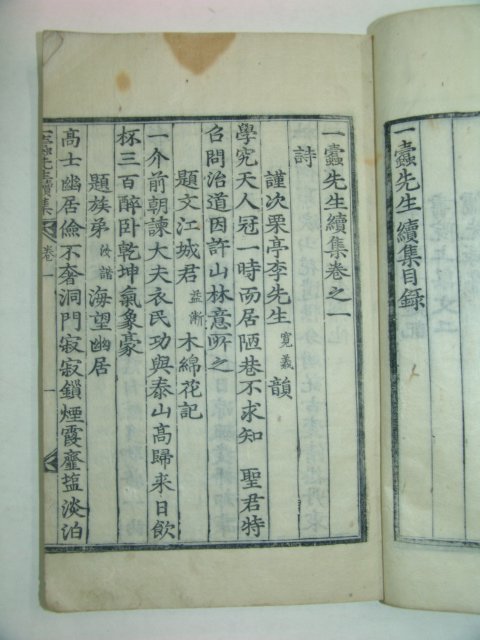 一蠹先生續集目錄
一蠹先生續集卷之一
詩
謹次栗亭李先生 寬義 韻
學究天人冠一時而居陋巷不求知 聖君特
召問治道因許山林意所之
題文江城君 益漸 木綿花記
一介前朝諫大夫衣民功與泰山高歸來日飮
杯三百醉卧乾坤氣象豪
題族弟 汝諧 海望幽居
高士幽居儉不奢洞門寂寂鎖煙霞虀塩淡泊
一蠹先生續集 卷一 一